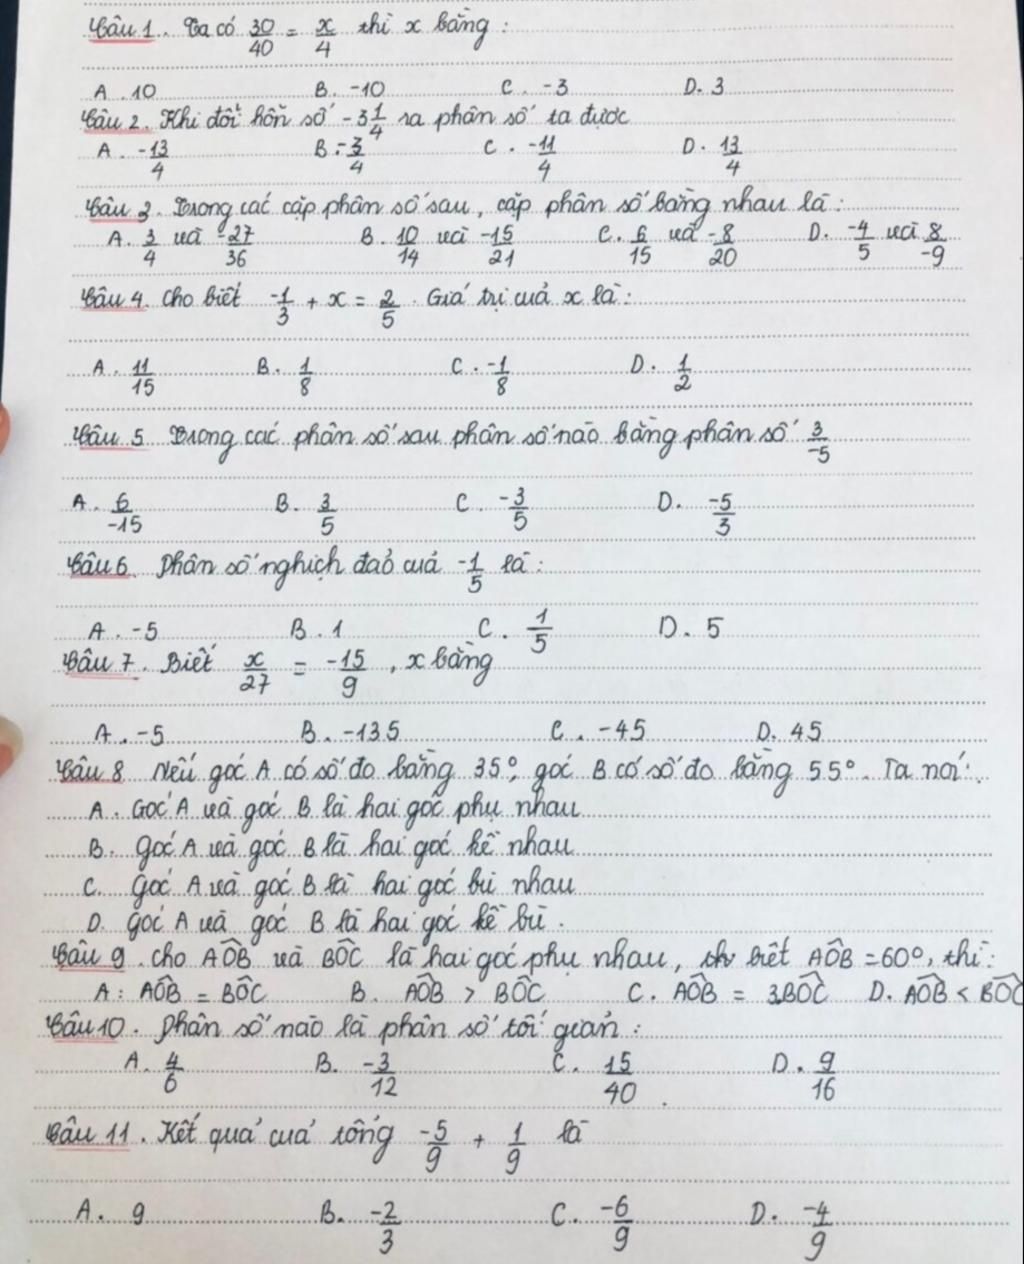 Câu 1. Ta có 30/40 = x/4 thì x bằng :
A. 10 B. -10 C. -3 D. 3
Câu 2. Khi đổi hỗn số -3 1/4 ra phân số ta được
A. -13/4 B. -3/4 C. -11/4 D. 13/4
Câu 3. Trong các cặp phân số sau, cặp phân số bằng nhau là :
A. 3/4 và -27/36 B. 10/14 và -15/21 C. 6/15 và -8/20 D. -4/5 và 8/-9
Câu 4. Cho biết -1/3 + x = 2/5. Giá trị của x là :
A. 11/15 B. 1/8 C. -1/8 D. 1/2
Câu 5 Trong các phân số sau phân số nào bằng phân số 3/-5
A. 6/-15 B. 3/5 C. -3/5 D. -5/3
Câu 6. Phân số nghịch đảo của -1/5 là :
A. -5 B. 1 C. 1/5 D. 5
Câu 7. Biết x/27 = -15/9, x bằng
A. -5 B. -135 C. -45 D. 45
Câu 8 Nếu góc A có số đo bằng 35°, góc B có số đo bằng 55°. Ta nói :
A. Góc A và góc B là hai góc phụ nhau
B. Góc A và góc B là hai góc kề nhau
C. Góc A và góc B là hai góc bù nhau
D. Góc A và góc B là hai góc kề bù.
Câu 9. Cho AÔB và BÔC là hai góc phụ nhau, biết AÔB = 60°, thì :
A : AÔB = BÔC B. AÔB > BÔC C. AÔB = 3BÔC D. AÔB < BÔC
Câu 10. Phân số nào là phân số tối giản :
A. 4/6 B. -3/12 C. 15/40 D. 9/16
Câu 11. Kết quả của tổng -5/9 + 1/9 là
A. 9 B. -2/3 C. -6/9 D. -4/9